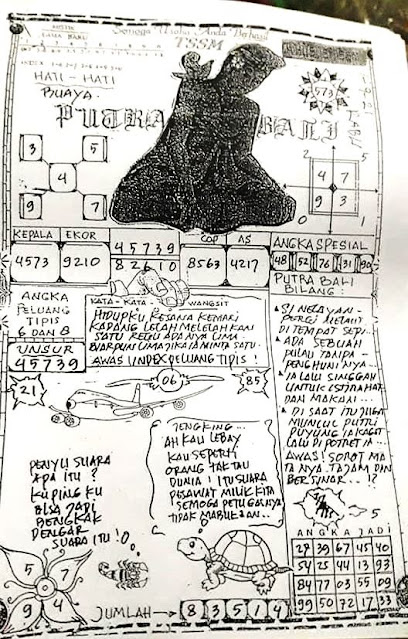 Semoga Usaha Anda Berhasil
TSSM
HATI - HATI
BUAYA.
PUTRA BALI
573
3 5
4
9 7
2 5
4 7
9 3
0 1
KEPALA EKOR
4573 9210
45739
82610
COP AS
8563 4217
ANGKA SPESIAL
48 52 76 31 90
PUTRA BALI
BILANG :
ANGKA
PELUANG
TIPIS
6 DAN 8
UNSUR
45739
KATA - KATA WANGSIT
HIDUPKU KESANA KEMARI
KADANG LELAH MELELAHKAN
SATU REGU ADANYA LIMA
BIARPUN LIMA JIKA
MINTA SATU
AWAS INDEX PELUANG TIPIS !
SI NELAYAN -
PERGI MELAUT
DI TEMPAT SEPI...
ADA SEBUAH
PULAU TANPA -
PENGHUNINYA -
IA LALU SINGGAH
UNTUK ISTIRAHAT
DAN MAKAN...
DI SAAT ITU JUGA
MUNCUL PUTRI
DUYUNG
LALU DI POTRET IA...
AWAS! SOROT MA
TANYA TAJAM DAN
BERSINAR..!?
21
06
85
PENYU SUARA
APA ITU ?
KUPING KU
BISA JADI
BENGKAK
DENGAR
SUARA ITU !
JENGKING...
AH KAU LEBAY
KAU SEPERTI
ORANG TAK TAU
DUNIA ! ITU SUARA
PESAWAT MILIK KITA
SEMOGA PETUGASNYA
TIDAK MABUKAN...
5
5 7
9 4
JUMLAH
8 3 5 1 4
ANGKA JADI
28 39 67 45 40
54 25 44 13 93
84 77 03 55 09
99 50 72 17 33